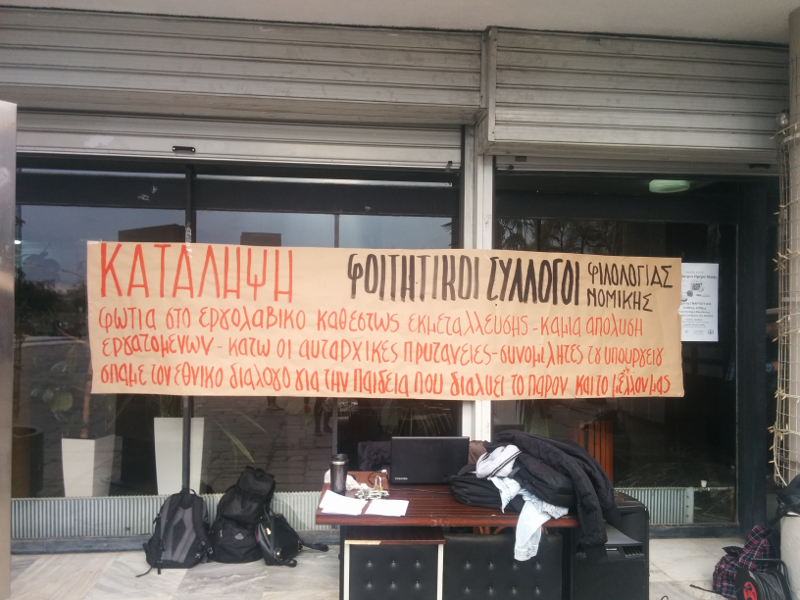 ΚΑΤΑΛΗΨΗ ΦΟΙΤΗΤΙΚΟΙ ΣΥΛΛΟΓΟΙ ΦΙΛΟΛΟΓΙΑΣ
ΝΟΜΙΚΗΣ
φωτια στο εργολαβικο καθεστως εκμεταλλευσης - καμια απολυση
εργατομενων - κατω οι αυταρχικες πρυτανειες - συνομιλητες του υπουργειου
σπαμε τον εθνικο διαλογο για την Παιδεια που διαλυει το παρον και το μελλον μας
TOSHIBA